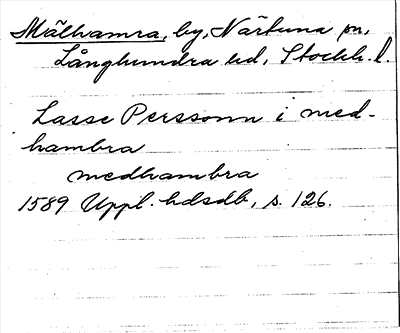 Mälhamra, by, Närtuna sn,
Långhundra hd, Stockh. l.
Lasse Perssonn i med-
hambra
medhambra
1589 Uppl. hdsdb, s. 126.